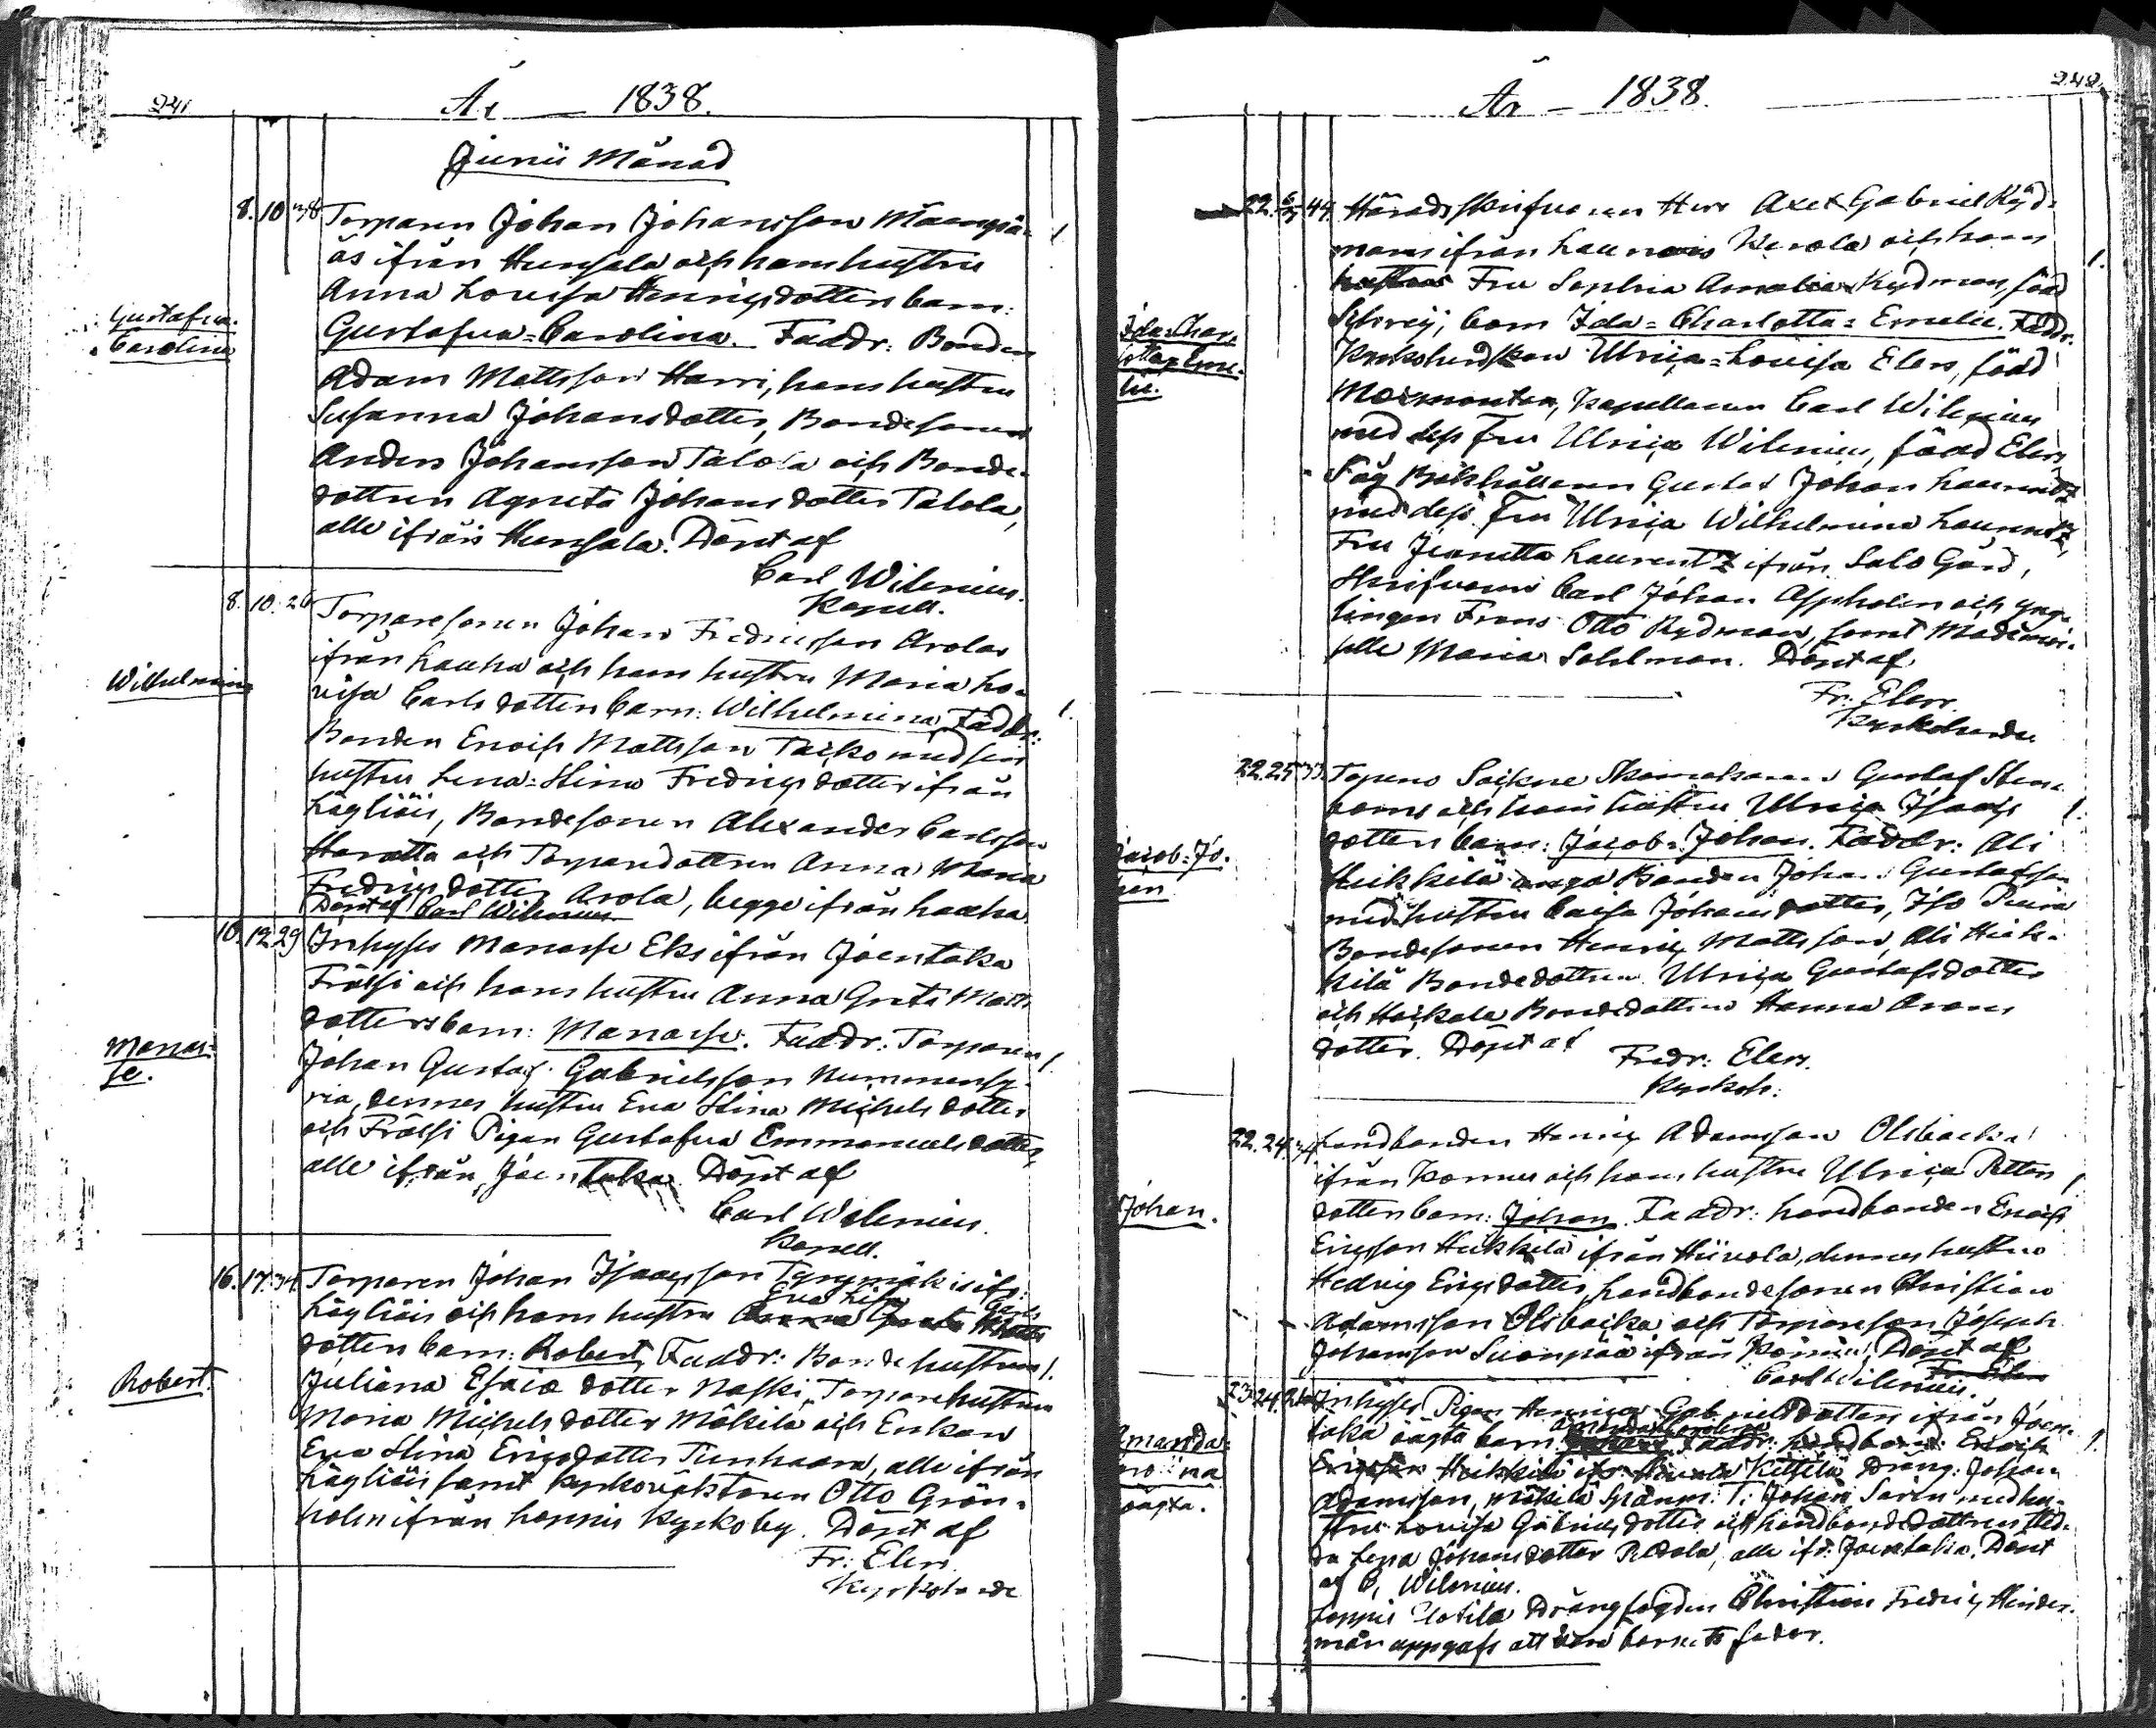 241
År 1838.
Junii Månad
Gustafva=
Carolina
8. 10 38 Torparen Johan Johansson
ås ifrån Hunsala och hans hustru
Anna Lovisa Henricsdotters barn:
Gustafva=Carolina. Faddr: Bonden
Adam Mattsson Harri, hans hustru
Susanna Johansdotter, Bondesonen
Anders Johansson Talola och Bonde-
dottren Agneta Johansdotter Talola,
alle ifrån Hunsala. Döpt af
Carl Wilenius.
Kapell.
Wilhelmina
8. 10. 26 Torparesonen Johan Fredricsson Arola
ifrån Lauha och hans hustru Maria Lo-
visa Carlsdotters barn: Wilhelmina, Faddr: 1.
Bonden Enoch Mattsson Tacko med sin
hustru Lena=Stina Fredricsdotter ifrån
Läyliäis, Bondesonen Alexander Carlsson
Haratta och Torparedottren Anna Maria
Fredricsdotter Arola, begge ifrån Lauha.
Döpt af Carl Wilenius
Manas=
se.
10. 12 29 Inhyses Manasse Ek ifrån Joentaka
Frälsi och hans hustru Anna Greta Matts
dotters barn: Manasse. Faddr: Torparen 1.
Johan Gustaf Gabrielsson Nummensy-
ria, dennes hustru Eva Stina Michelsdotter
och Frälsi Pigan Gustafva Emmanuelsdotter,
alle ifrån Joentaka. Döpt af
Carl Wilenius.
Kapell.
Robert.
16. 17. 34. Torparen Johan Isacsson
Läyliäis och hans hustru Eva Lisa Carls
dotters barn: Robert, Faddr: Bonde hustrun 1.
Juliana Esaiæ dotter Naski, Torparehustrun
Maria Michelsdotter Mäkilä och Enkan
Eva Stina Ericsdotter Tienhaara, alle ifrån
Läyliäis samt Kyrkoväktaren Otto Grön-
holm ifrån Loppis Kyrkoby. Döpt af
Fr: Elers.
Kyrkoherde
242.
År – 1838.
Ida=Char-
lotta=Eme-
lie.
22. 44. Häradsskrifvaren Herr Axel Gabriel Ryd-
mans ifrån Launois Kerola och hans
Fru Sophia Amalia Rydman, född 1.
barn Ida=Charlotta=Emelie. Faddr:
Kyrkoherdskan Ulrica=Lovisa Elers, född
Kapellanen Carl Wilenius
med dess Fru Ulrica Wilenius, född Elers,
Bokhållaren Gustaf Johan Laurentz
med dess Fru Ulrica Wilhelmina Laurentz,
Fru Jeanetta Laurentz ifrån Salo Gård,
Skrifvaren Carl Johan Aspholm och yng-
lingen Frans Otto Rydman, samt Mademoi-
selle Maria Sohlman. Döpt af
Fr: Elers.
Kyrkoherde
Jacob=Jo-
han
22 25 33 Topeno Skomakaren Gustaf Sten-
boms och hans hustru Ulrica Isaacs 1.
dotters barn: Jacob=Johan. Faddr: Ali
Heikkilä unga Bonden Johan Gustafsson
med hustru Caisa Johansdotter, Iso
Bondesonen Henric Mattsson, Ali Heik-
kilä Bondedottren Ulrica Gustafsdotter
och Bondedottren Hanna Arons
dotter. Döpt af
Fredr: Elers.
Kyrkoh:
Johan.
22. 24. Landbonden Henric Adamsson Olsbacka
ifrån och hans hustru Ulrica Petters 1.
dotters barn: Johan. Faddr: Landbonden Enoch
Ericsson Heikkilä ifrån Hirvola, dennes hustru
Hedvig Ericsdotter, Landbondesonen Christian
Adamsson Olsbacka och Torpareson Joseph
Johansson Suonpää ifrån Döpt af
Carl Wilenius.
Amanda=
Carolina
oägta.
23. 24. Inhyses Pigan Henrica Gabrielsdotters ifrån Joen-
taka oägta barn Amanda Carolina Faddr: 1.
Dräng: Johan
Adamsson, Mäkilä Johan med hu-
stru Lovisa Gabrielsdotter och Landbondedottren Hed-
da Lena Johansdotter alle ifr: Joentaka. Döpt
af C. Wilenius.
Loppis Drängfogden Christian Fredric Hinder-
man uppgafs att vara barnets fader.